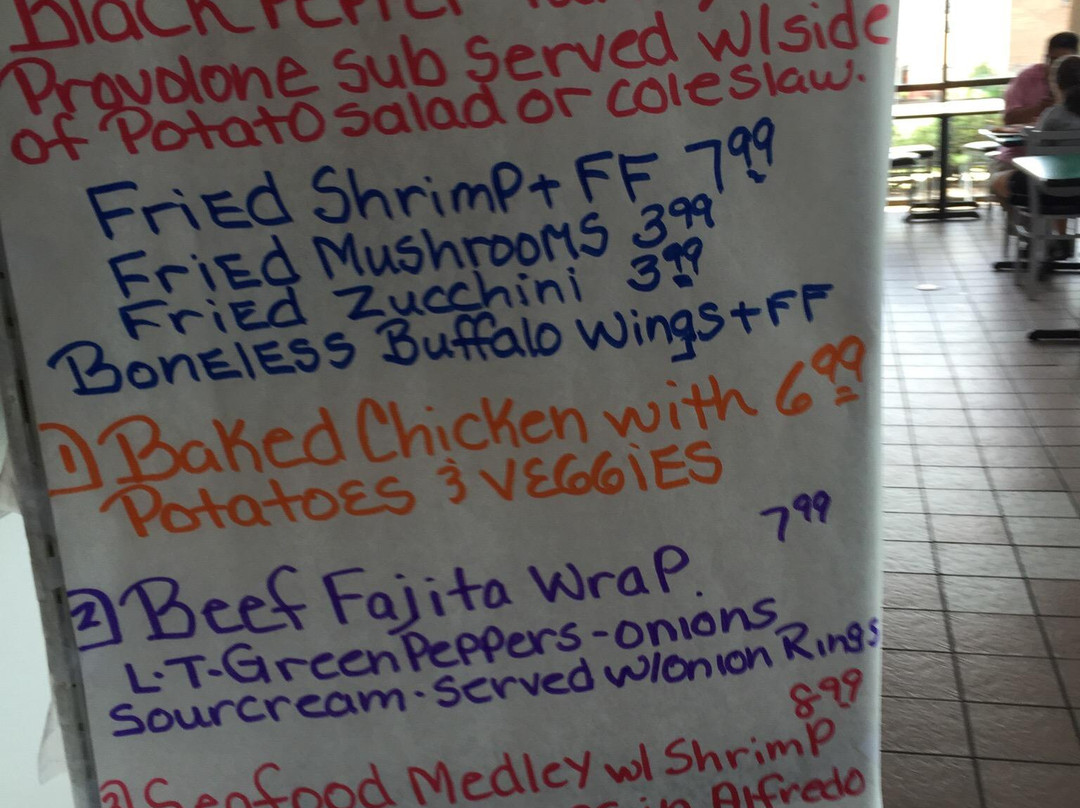 Black Pepper
Provolone sub served w/side
of Potato salad or coleslaw.
Fried Shrimp + FF 7.99
Fried Mushrooms 3.99
Fried Zucchini 3.99
Boneless Buffalo Wings + FF
1) Baked Chicken with 6.99
Potatoes & Veggies
7.99
2) Beef Fajita Wrap.
L-T-Green Peppers - onions
Sourcream - served w/onion Rings
8.99
3) Seafood Medley w/ Shrimp
in Alfredo